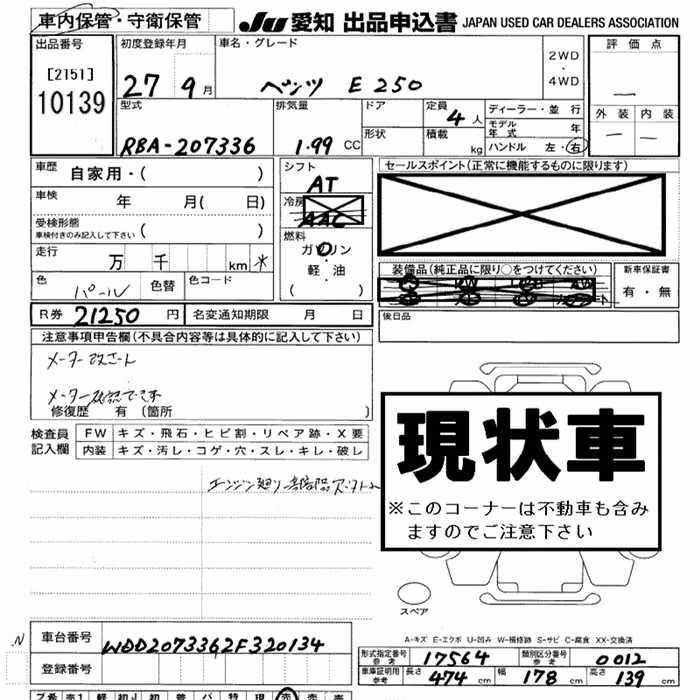 車内保管・守衛保管
JU 愛知 出品申込書 JAPAN USED CAR DEALERS ASSOCIATION
出品番号
[2151]
10139
初度登録年月
27 9月
車名・グレード
ベンツ E250
2WD
・
4WD
評価点
—
外装 内装
— —
型式
RBA-207336
排気量
1.99 CC
ドア
形状
定員
4人
積載
kg
ディーラー・並行
モデル年式 年
ハンドル 左・右
車歴
自家用・( )
車検
年 月( 日)
受検形態
車検付きのみ記入して下さい ( )
走行
万 千 km *
色
パール
色替
色コード
シフト
AT
冷房
AAC
燃料
ガソリン
軽・油
( )
セールスポイント(正常に機能するものに限ります)
装備品(純正品に限り○をつけてください)
新車保証書
有・無
R券 21250 円 名変通知期限 月 日
後日品
注意事項申告欄(不具合内容等は具体的に記入して下さい)
メーター
メーター
修復歴 有〔箇所 〕
検査員
記入欄
FW キズ・飛石・ヒビ割・リペア跡・X要
内装 キズ・汚レ・コゲ・穴・スレ・キレ・破レ
エンジン廻り
現状車
※このコーナーは不動車も含み
ますのでご注意下さい
スペア
A-キズ E-エクボ U-凹み W-補修跡 S-サビ C-腐食 XX-交換済
.N
車台番号 WDD2073362F320134
登録番号
形式指定番号
参考
17564
類別区分番号
参考
0012
車庫証明用
参考
長さ 474 cm 幅 178 cm 高さ 139 cm